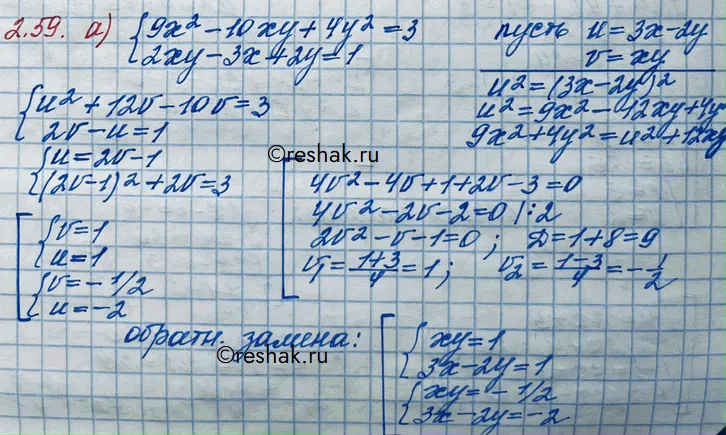 2.59. а) {9x² - 10xy + 4y² = 3
2xy - 3x + 2y = 1
пусть u = 3x - 2y
v = xy
u² = (3x - 2y)²
u² = 9x² - 12xy + 4y
9x² + 4y² = u² + 12xy
{u² + 12v - 10v = 3
2v - u = 1
{u = 2v - 1
(2v - 1)² + 2v = 3
©reshak.ru
[4v² - 4v + 1 + 2v - 3 = 0
4v² - 2v - 2 = 0 |: 2
2v² - v - 1 = 0 ; D = 1 + 8 = 9
v₁ = (1+3)/4 = 1 ; v₂ = (1-3)/4 = -1/2
[{v = 1
u = 1
{v = -1/2
u = -2
обратн. замена:
©reshak.ru
[{xy = 1
3x - 2y = 1
{xy = -1/2
3x - 2y = -2